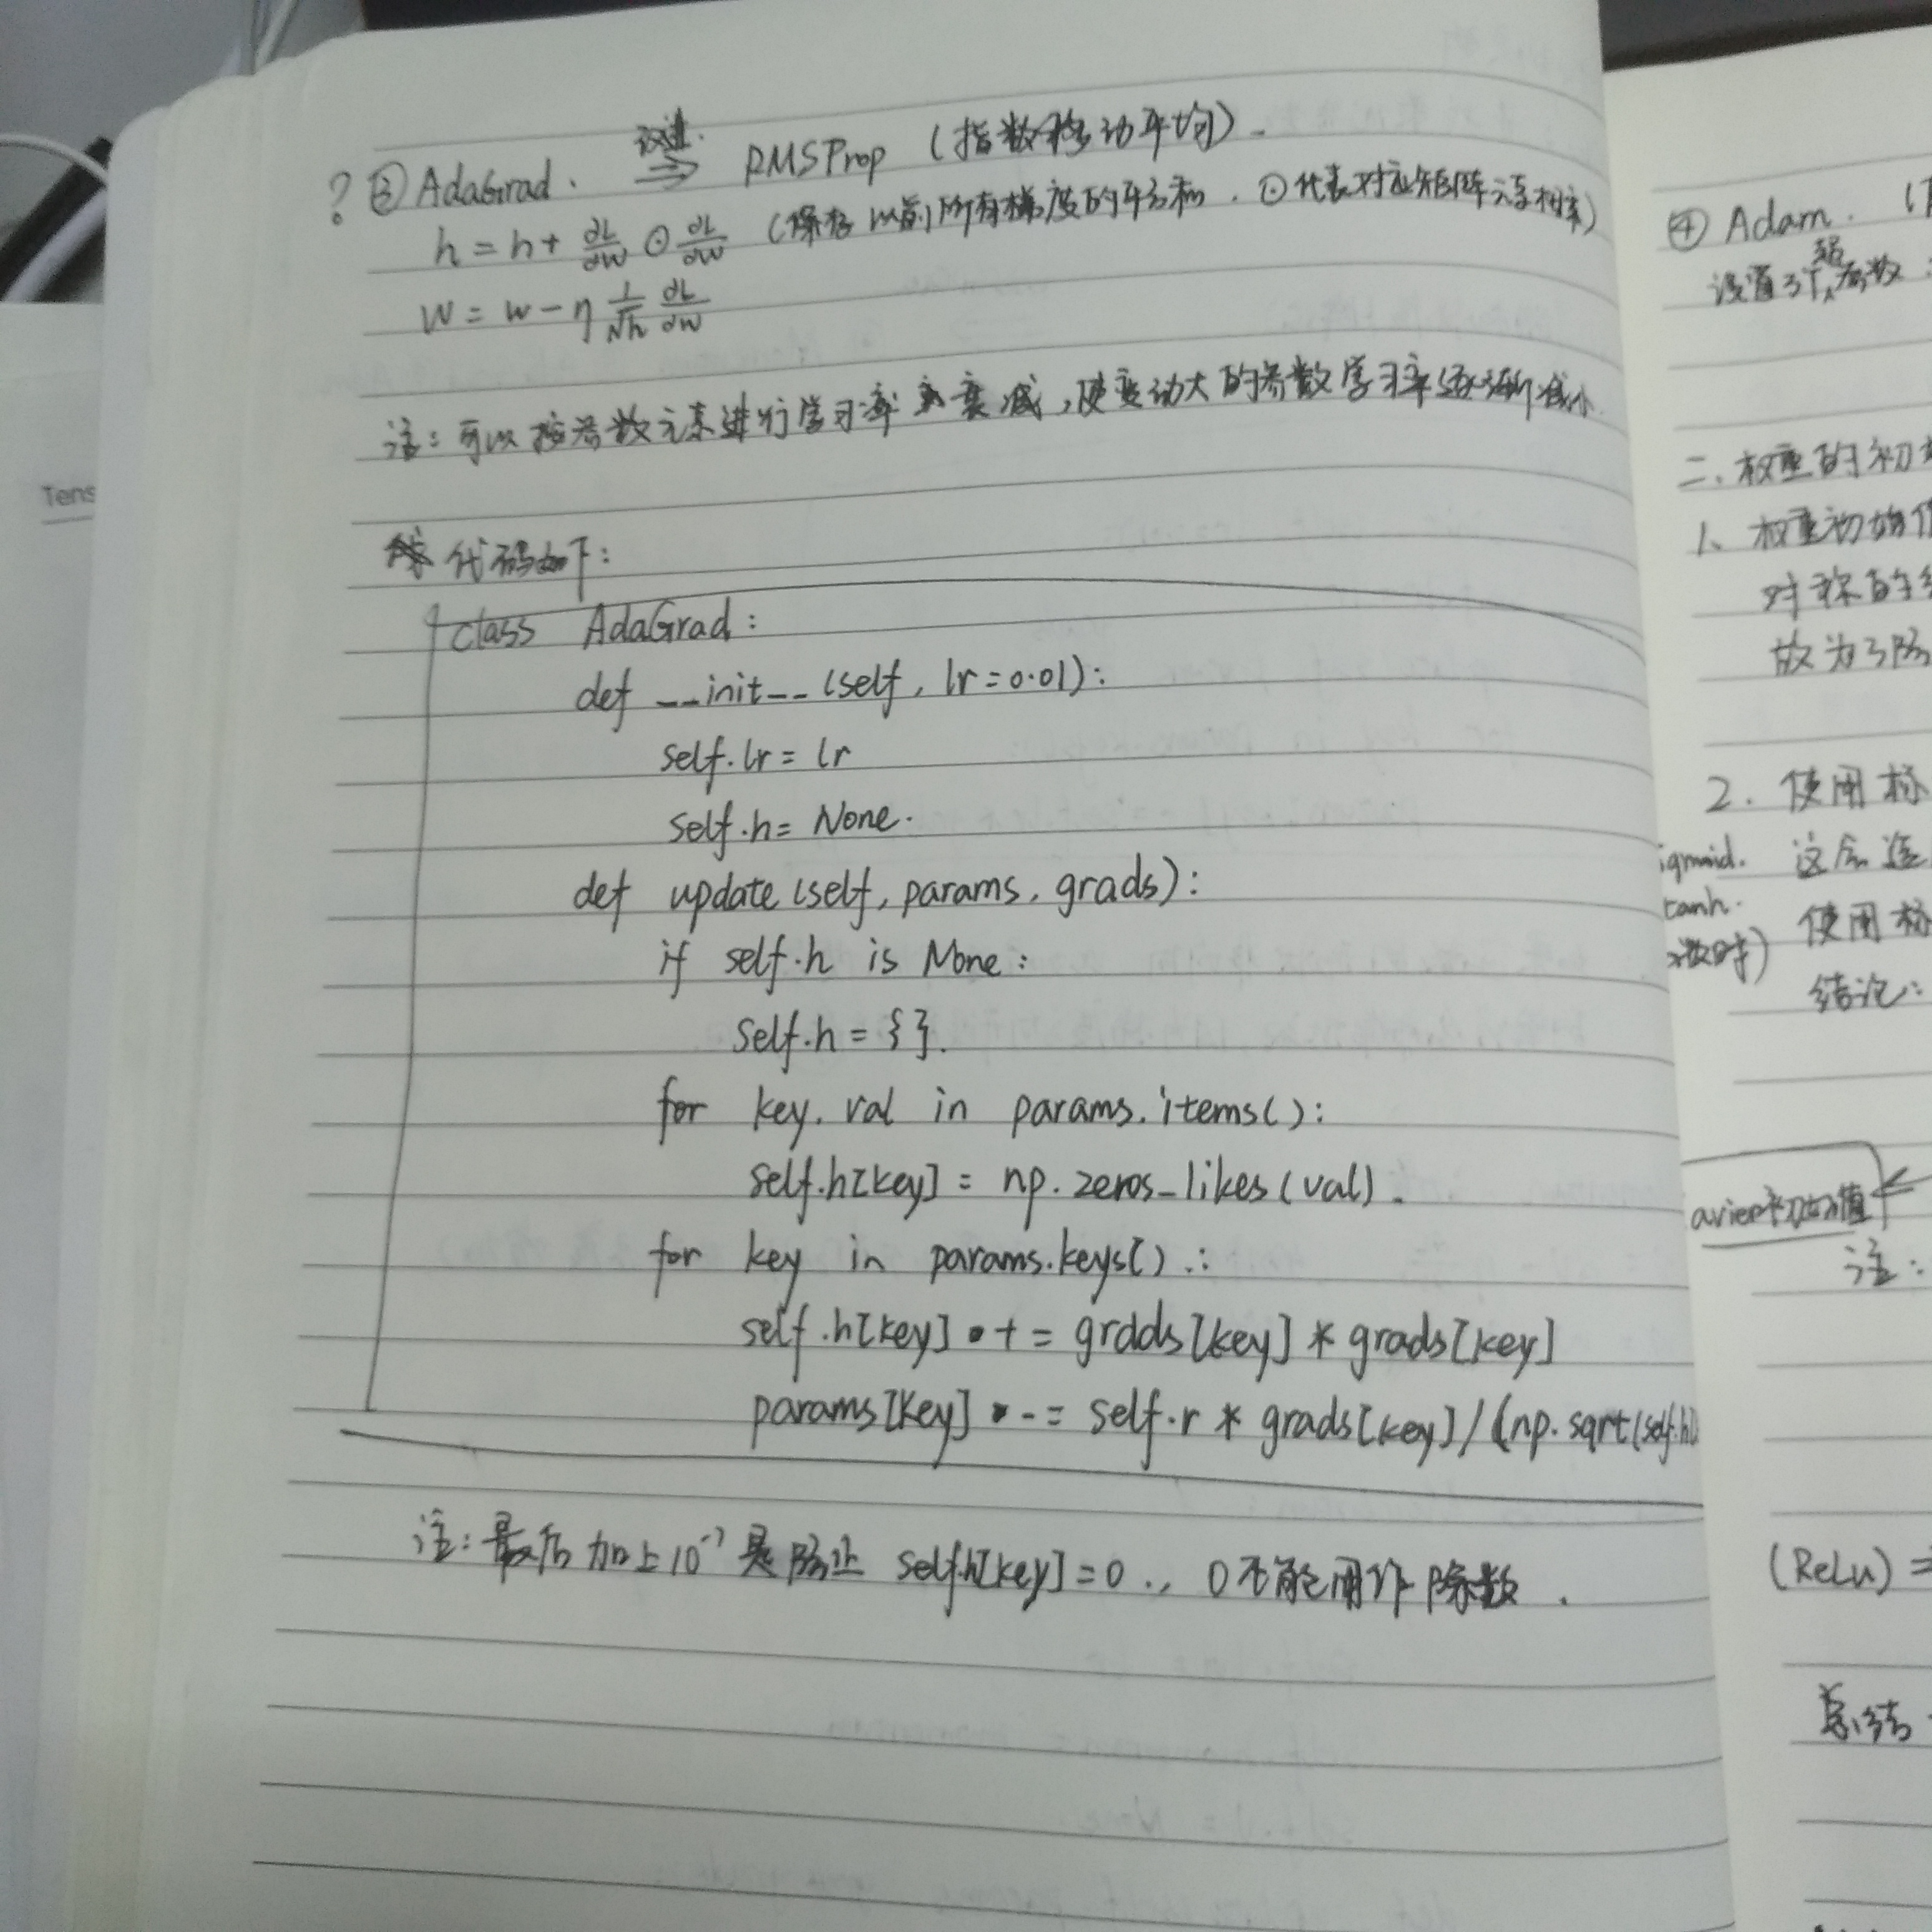 改进.
? ③ AdaGrad. ⇒ RMSProp (指数移动平均).
h = h + ∂L/∂W ⊙ ∂L/∂W (保存以前所有梯度的平方和. ⊙代表对应矩阵元素相乘)
W = w − η 1/√h ∂L/∂W
注: 可以按参数元素进行学习率衰减, 使变动大的参数学习率逐渐减小.
代码如下:
class AdaGrad:
def __init__(self, lr=0.01):
self.lr = lr
self.h = None.
def update(self, params, grads):
if self.h is None:
self.h = {}.
for key, val in params.items():
self.h[key] = np.zeros_likes(val).
for key in params.keys():
self.h[key] += grdds[key] * grads[key]
params[key] -= self.r * grads[key]/(np.sqrt(self.h[
注: 最后加上10⁻⁷是防止 self.h[key]=0., 0不能用作除数.
Tens
④ Adam. (
设置3个超参数:
二. 权重的初
1. 权重初始
对称的
故为了防
2. 使用
igmoid. 这
tanh. 使用
数时)
结论:
avier初始值
注:
(ReLu) ⇒
总结